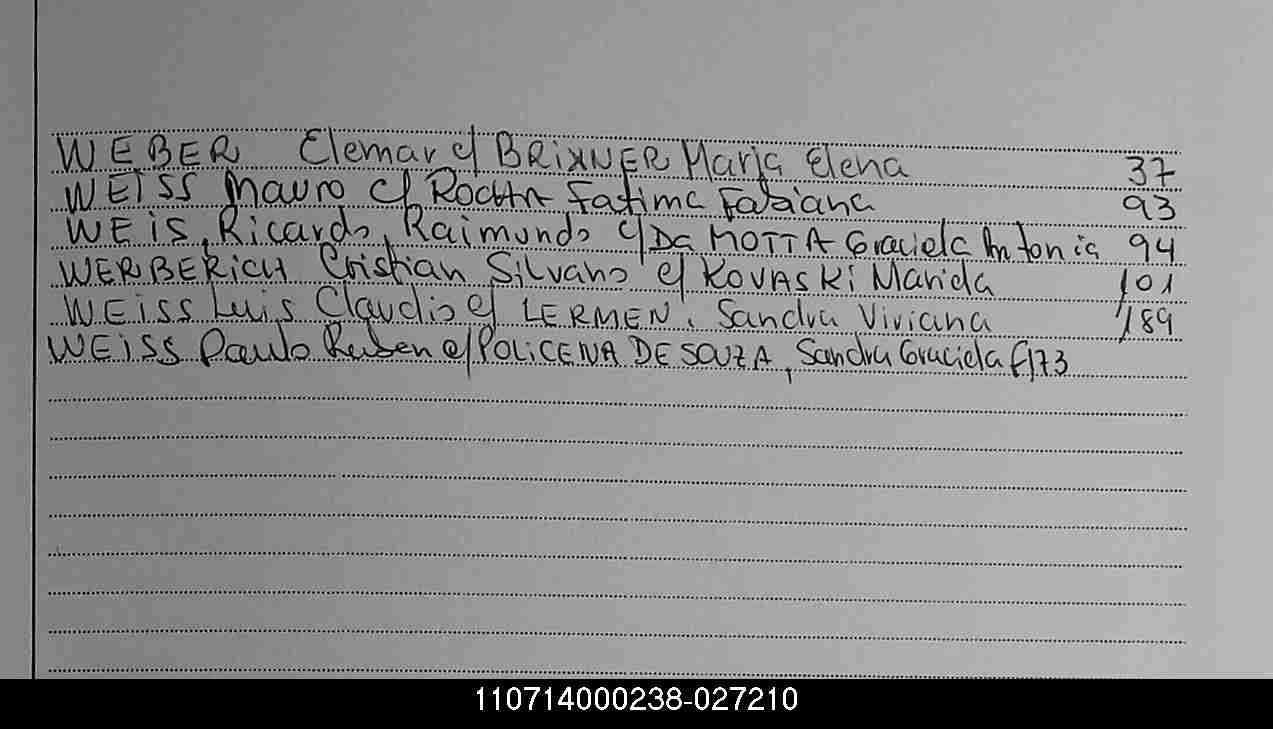 WEBER Elemar c/ BRIXNER Maria Elena 37
WEISS Mauro c/ ROCHA Fatima Fabiana 93
WEiS, Ricardo, Raimundo c/ Da MOTTA Graciela Antonia 94
WERBERiCH Cristian Silvano c/ KOVASKi Mariela 101
WEiSS Luis Claudio c/ LERMEN, Sandra Viviana 189
WEiSS Paulo Ruben c/ POLiCENA DE SOUZA, Sandra Graciela F/173
110714000238-027210